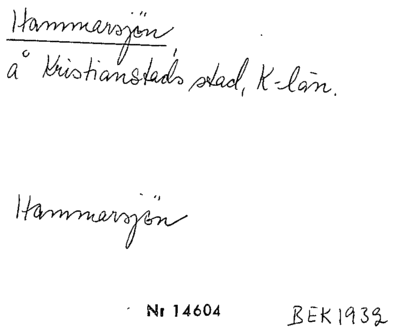 Hammarsjön,
å Kristianstads stad, K-län.
Hammarsjön
Nr 14604
BEK 1932